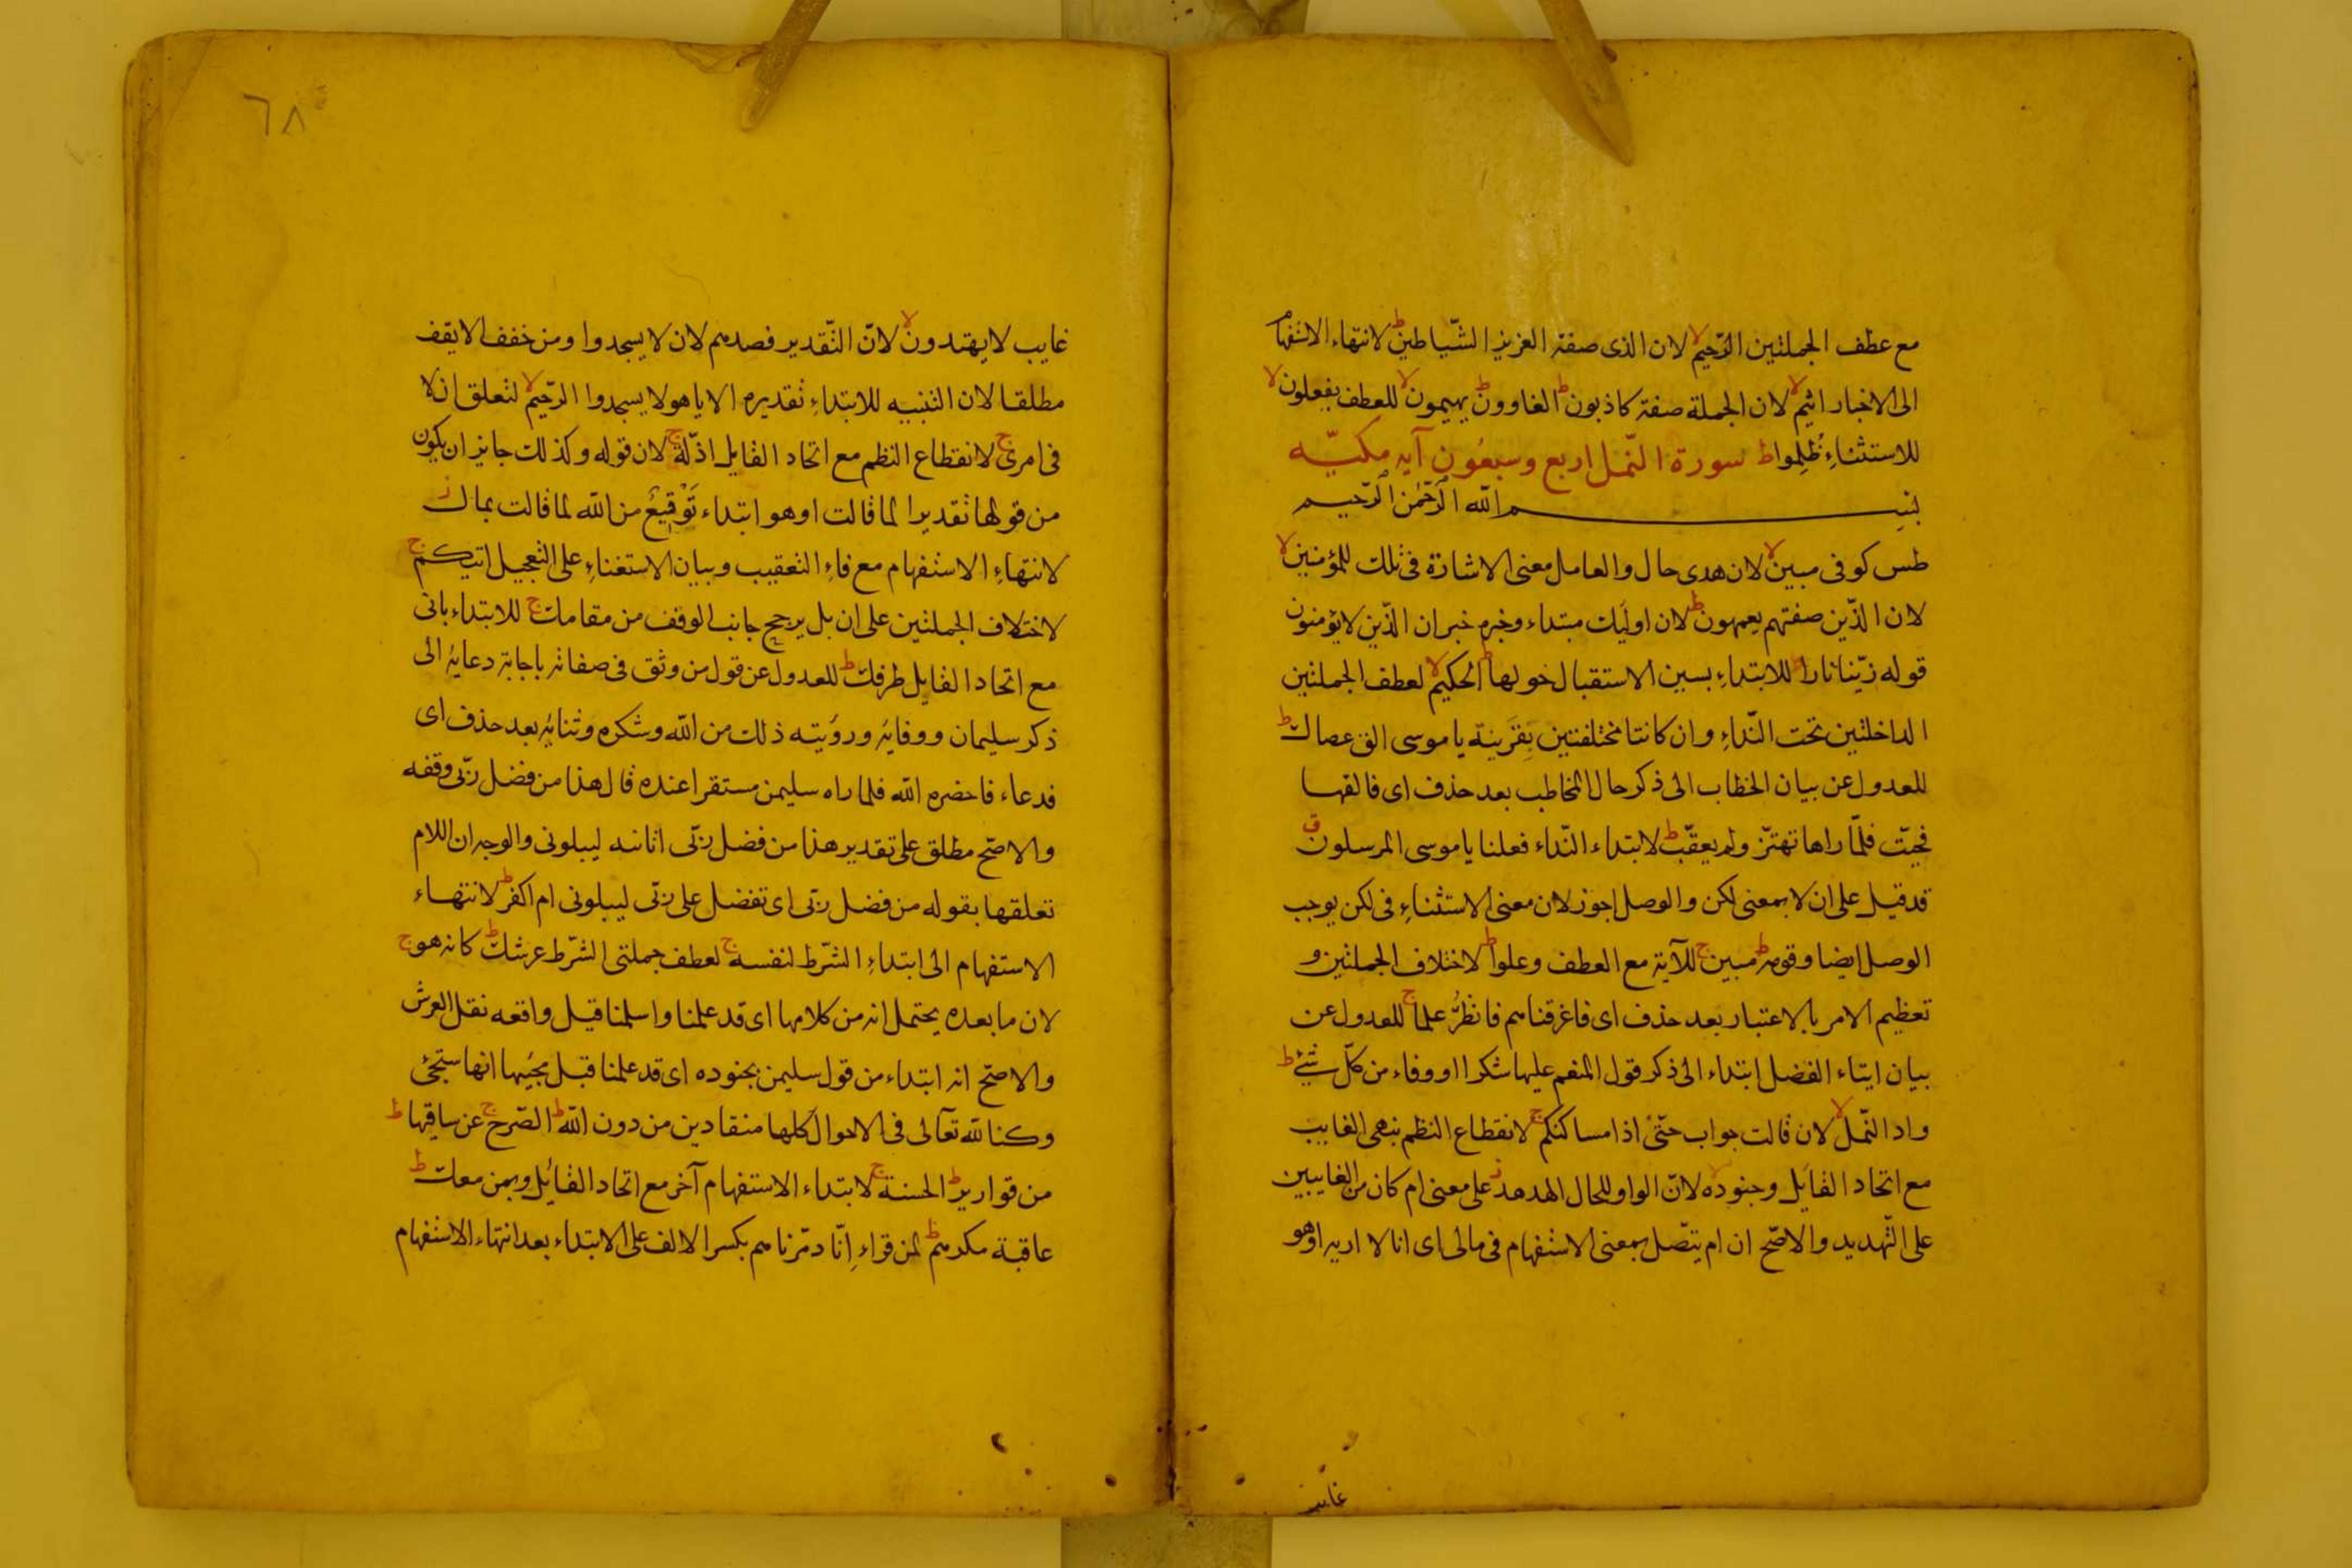 مع عطف الجملتين الرّحيم لا لان الذى صفة العزيز الشّياطين ط لانتهاء الاستفهام
الى الاخبار اثيم لا لان الجملة صفة كاذبون ط الغاوون ط يهيمون لا للعطف يفعلون لا
للاستثناءِ ظُلِموا ط سورة النّمل اربع وسبعُون آيه مكيّه
بسم الله الرّحمٰن الرّحيم
طس كوفى مبين لا لان هدى حال والعامل معنى الاشارة فى تلك للمؤمنين لا
لان الذّين صفتهم يعمهون ط لان اوليك مبتداء وخبره خبر ان الذّين لا يؤمنون
قوله زيّنا نارا ط للابتداءِ بسين الاستقبال حولها ط الحكيم لا لعطف الجملتين
الداخلتين تحت النّداءِ وان كانتا مختلفتين بقرينة يا موسى الق عصاك ط
للعدول عن بيان الخطاب الى ذكر حال المخاطب بعد حذف اى فالقها
فحيّت فلمّا راها تهتزّ ولم يعقّب ط لابتداء النّداء فعلنا يا موسى المرسلون ق
قد قيل على ان لا بمعنى لكن والوصل اجوز لان معنى الاستثناءِ فى لكن يوجب
الوصل ايضا وقومه ط مبين ج للآية مع العطف وعلوا ط لاختلاف الجملتين و
تعظيم الامر بالاعتبار بعد حذف اى فاغرقناهم فانظُرُ علما ج للعدول عن
بيان ايتاء الفضل ابتداء الى ذكر قول المنعم عليها شكرا ووفاء من كلّ شئ ط
واد النّمل لا لان قالت جواب حتّى اذا مساكنكم ج لانقطاع النظم بنهى الغايب
مع اتحاد القايل وجنوده لا لانّ الواو للحال الهدهد ز على معنى ام كان من الغايبين
على التّهديد والاصّح ان ام يتّصل بمعنى الاستفهام فى مالى اى انا لا اريه اوهو
غايب
٦٨
غايب لا يهتدون لا لانّ التّقدير فصدهم لان لا يسجدوا ومن خفف الا يقف
مطلقا لان التنبيه للابتداءِ تقديره الا يا هولا يسجدوا الرّحيم لا لتعلق ان لا
فى امرى ج لانقطاع النظم مع اتحاد القايل اذلّة ج لان قوله وكذلك جايز ان يكون
من قولها تقديرا لما قالت او هو ابتداء تَوْقيعٌ من الله لما قالت بمال ز
لانتهاءِ الاستفهام مع فاءِ التعقيب وبيان الاستغناءِ على التعجيل اتيكم ج
لاختلاف الجملتين على ان بل يرجح جانب الوقف من مقامك ج للابتداء بانى
مع اتحاد القايل طرفك ط للعدول عن قول من وثق فى صفاته باجابة دعايهُ الى
ذكر سليمان ووفايهُ ورؤيته ذلك من الله وشكره وثنايهُ بعد حذف اى
فدعاء فاحضره الله فلما راه سليمن مستقرا عنده قال هذا من فضل ربّى وقفه
والاصّح مطلق على تقدير هذا من فضل ربّى اثانيه ليبلونى والوجه ان اللام
تعلقها بقوله من فضل ربّى اى تفضل على ربّى ليبلونى ام اكفر ط لانتهاء
الاستفهام الى ابتداءِ الشّرط لنفسه ج لعطف جملتى الشّرط عرشك ط كانه هو ج
لان ما بعده يحتمل انه من كلامها اى قد علمنا واسلمنا قيل واقعه نقل العرش
والاصّح انه ابتداء من قول سليمن بجنوده اى قد علمنا قبل مجيها انها ستجئ
وكنا لله تعآلى فى الاحوال كلها منقادين من دون الله ط الصّرح ج عن ساقيها ط
من قوارير ط الحسنة ج لابتداء الاستفهام آخر مع اتحاد القائل وبمن معك ط
عاقبة مكرهم ط لمن قراءِ اِنّا دمّرناهم بكسر الالف على الابتداء بعد انتهاء الاستفهام